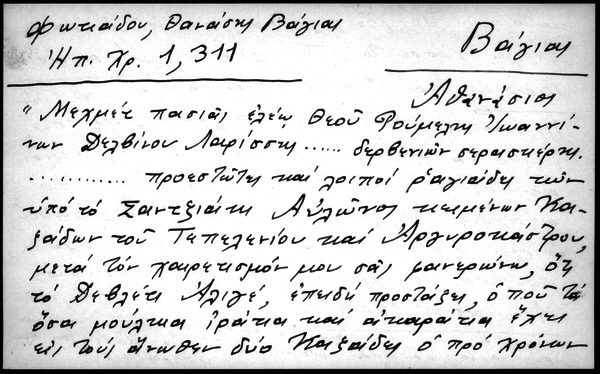 Φωτιάδου, Θανάσης Βάγιας
Ἠπ. Χρ. 1, 311
Βάγιας
Ἀθανάσιος
"Μεχμέτ πασιᾶς ἐλέῳ Θεοῦ Ρούμελης Ἰωαννί-
νων Δελβίνου Λαρίσσης ...... δερβενιῶν σερασκέρης.
............ προεστῶτες καί λοιποί ῥαγιάδες τῶν
ὑπό τό Σαντζιάκι Αὐλῶνος κειμένων Κα-
ζάδων τοῦ Τεπελενίου καί Ἀργυροκάστρου,
μετά τόν χαιρετισμόν μου σᾶς φανερώνω, ὅτι
τό Δεβλέτι Ἀλιγέ, ἐπειδή προστάζει, ὁποῦ τά
ὅσα μούλκια ἰράτια καί ἀκαράτια ἔχει
εἰς τούς ἄνωθεν δύο Καζάδες ὁ πρό χρόνων